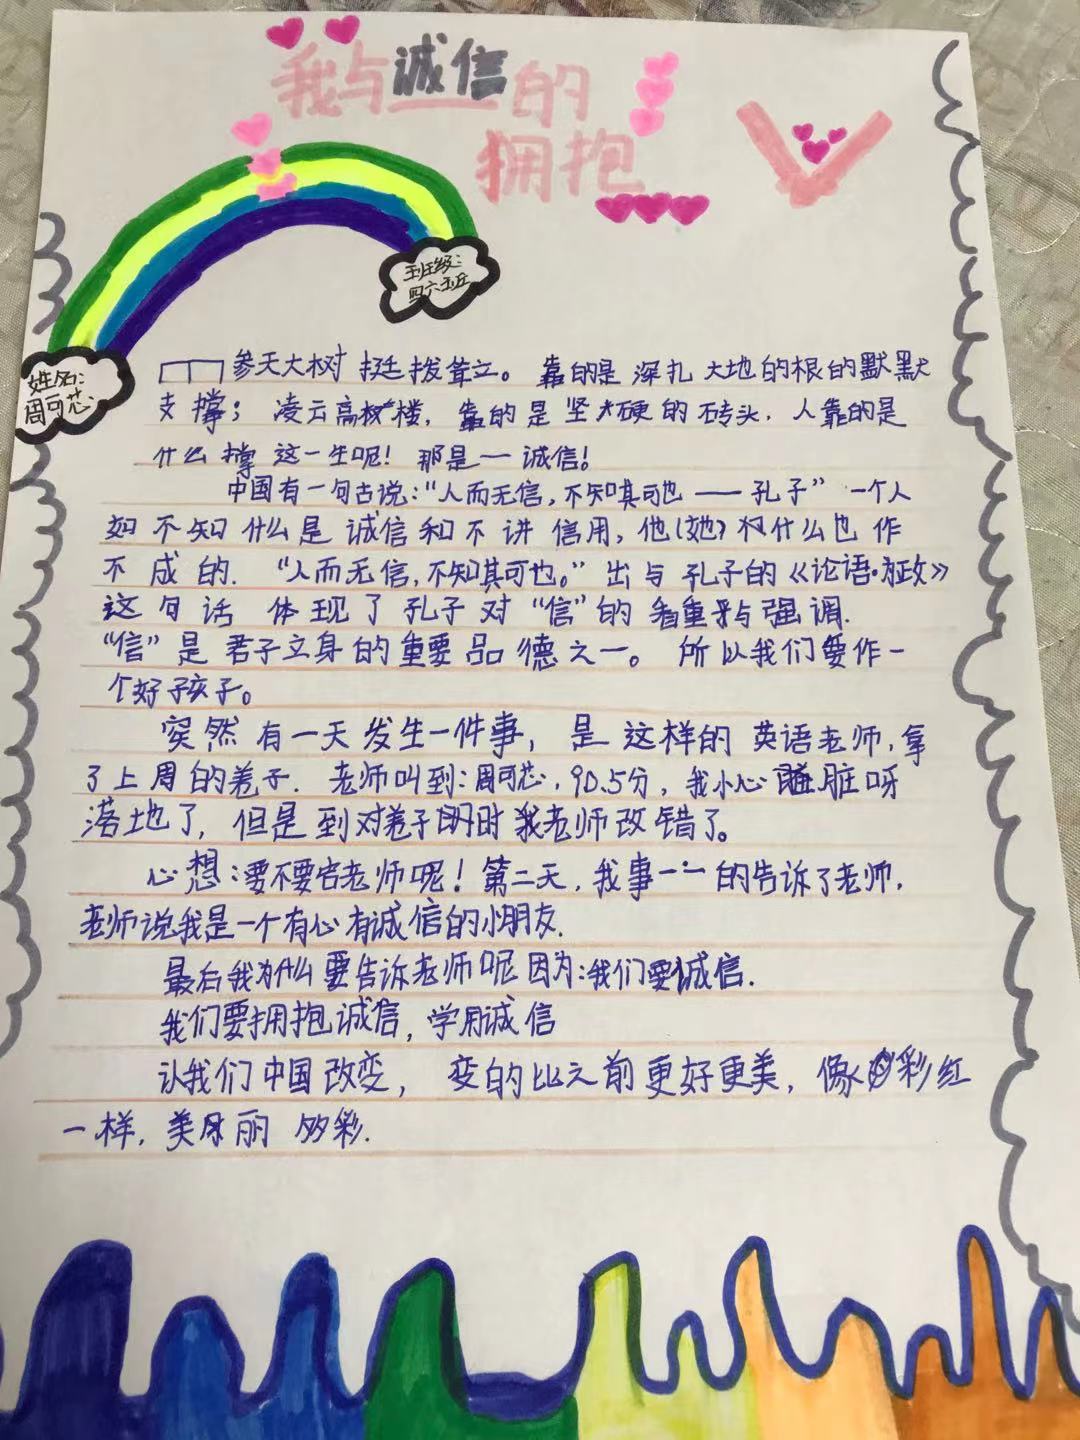 我与诚信的
拥抱
班级：
四六班
姓名：
周可芯
参天大树 挺拨耸立。靠的是深扎大地的根的默默
支撑；凌云高楼，靠的是坚硬的砖头．人靠的是
什么撑这一生呢！那是一诚信！
中国有一句古说：“人而无信，不知其可也——孔子” 一个人
如不知什么是诚信和不讲信用，他（她）权什么也作
不成的．“人而无信，不知其可也。”出与孔子的《论语·为政》
这句话体现了孔子对“信”的看重与强调．
“信”是君子立身的重要品德之一。所以我们要作一
个好孩子。
突然有一天发生一件事，是这样的英语老师，拿
了上周的卷子．老师叫到：周可芯，90.5分，我小心脏呀
落地了，但是到对卷子时我老师改错了。
心想：要不要告老师呢！第二天，我事一一的告诉了老师，
老师说我是一个有心有诚信的小朋友．
最后我为什么要告诉老师呢因为：我们要诚信．
我们要拥抱诚信，学用诚信
让我们中国改变，变的比之前更好更美，像彩红
一样，美丽多彩．